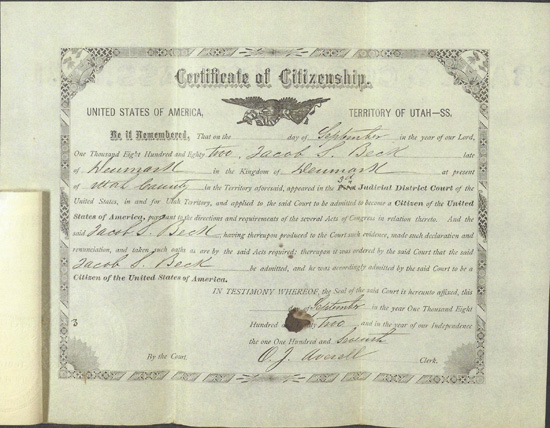 Certificate of Citizenship.
UNITED STATES OF AMERICA, TERRITORY OF UTAH—SS.
Be it Remembered, That on the day of September in the year of our Lord,
One Thousand Eight Hundred and Eighty two, Jacob S. Beck late
of Denmark in the Kingdom of Denmark at present
of Utah County in the Territory aforesaid, appeared in the 3rd Judicial District Court of the
United States, in and for Utah Territory, and applied to the said Court to be admitted to become a Citizen of the United
States of America, pursuant to the directions and requirements of the several Acts of Congress in relation thereto. And the
said Jacob S. Beck having thereupon produced to the Court such evidence, made such declaration and
renunciation, and taken such oaths as are by the said Acts required; thereupon it was ordered by the said Court that the said
Jacob S. Beck be admitted, and he was accordingly admitted by the said Court to be a
Citizen of the United States of America.
IN TESTIMONY WHEREOF, the Seal of the said Court is hereunto affixed, this
September in the year One Thousand Eight
Hundred two and in the year of our Independence
the one One Hundred and Seventh
O. J. Averill Clerk.
By the Court.
3